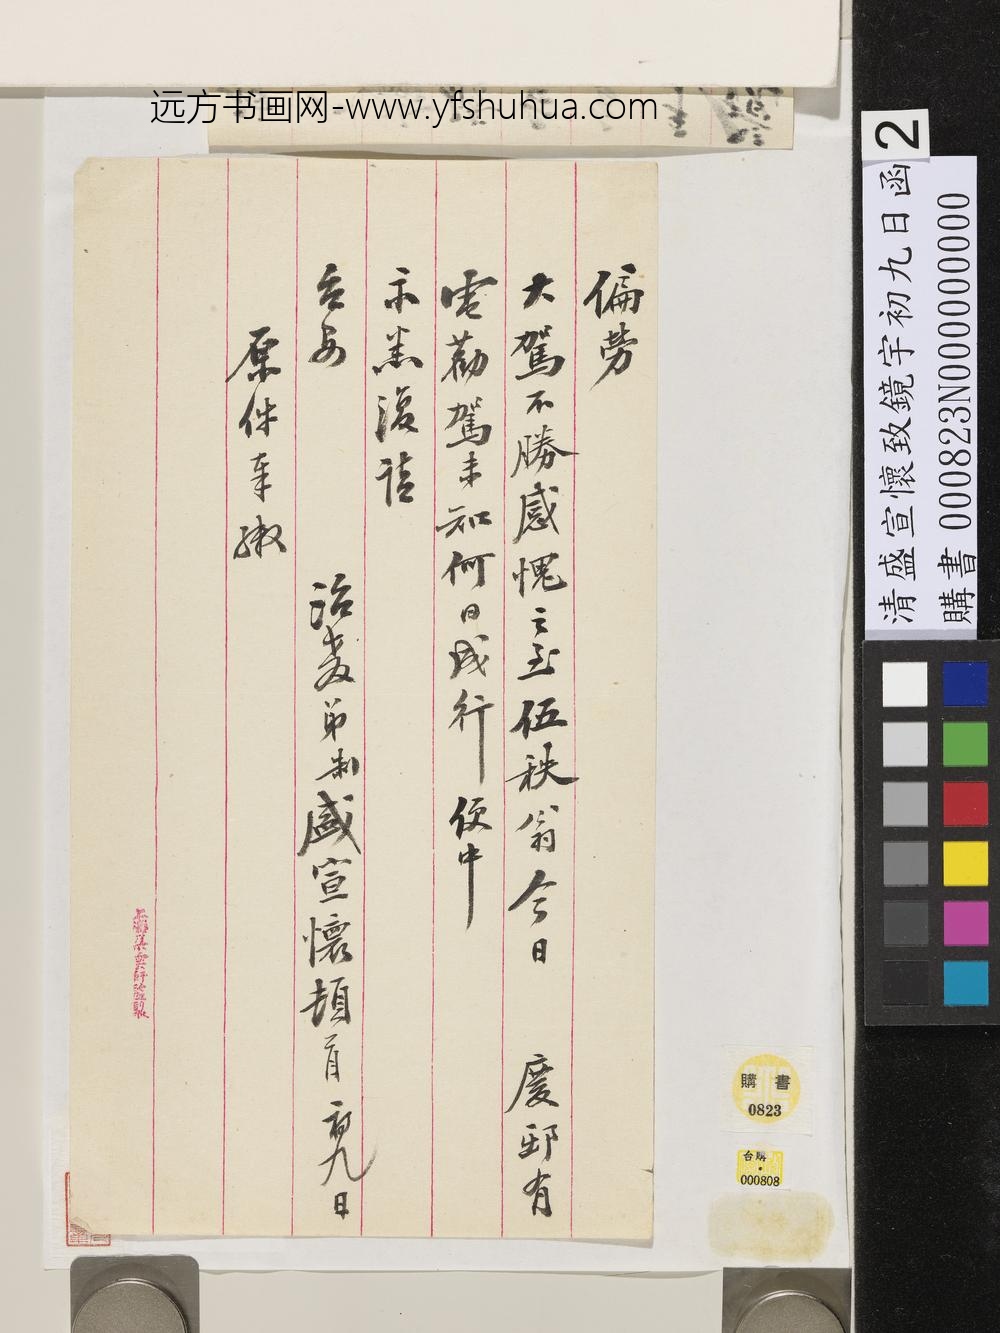 远方书画网-www.yfshuhua.com
偏勞
大駕不勝感愧之至伍秩翁今日 慶邸有
電勸駕未知何日成行便中
示悉復請
台安
治愚弟制盛宣懷頓首 初九日
原件奉繳
2
清盛宣懷致鏡宇初九日函
購書 000823N000000000
購書
0823
台購
000808